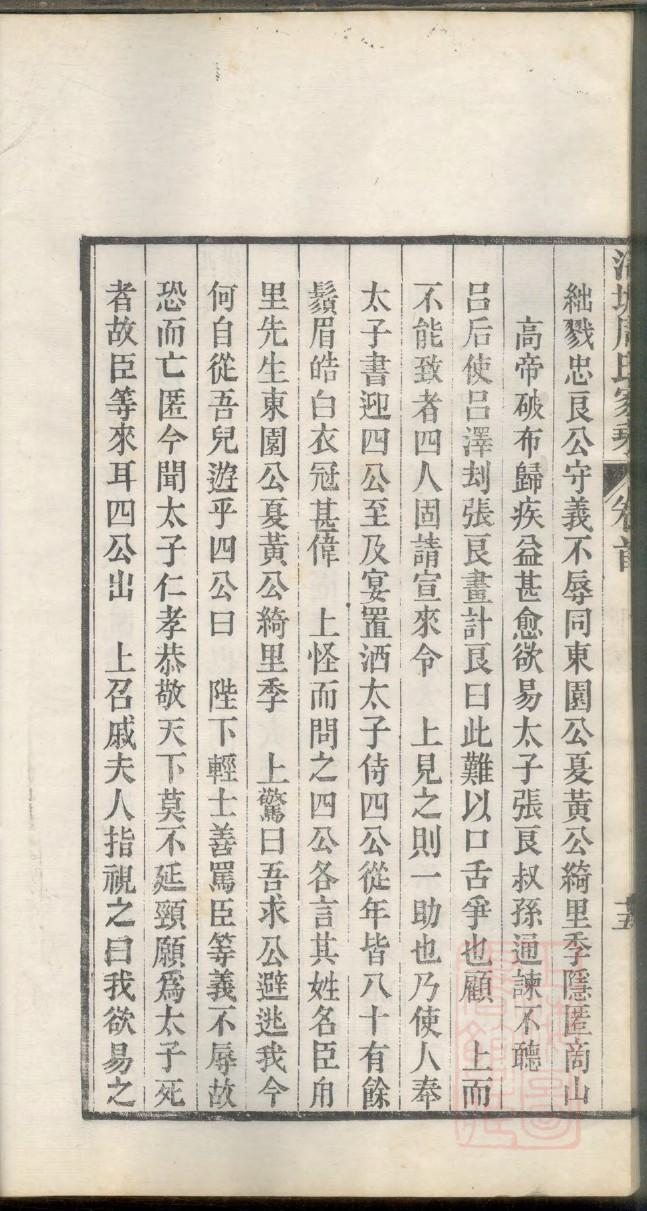 絀戮忠良公守義不辱同東園公夏黃公綺里季隱匿商山
高帝破布歸疾益甚愈欲易太子張良叔孫通諫不聽
呂后使呂澤刦張良畫計良曰此難以口舌爭也顧　上而
不能致者四人固請宣來令　上見之則一助也乃使人奉
太子書迎四公至及宴置酒太子侍四公從年皆八十有餘
鬚眉皓白衣冠甚偉　上怪而問之四公各言其姓名臣甪
里先生東園公夏黃公綺里季　上驚曰吾求公避逃我今
何自從吾兒遊乎四公曰　陛下輕士善罵臣等義不辱故
恐而亡匿今聞太子仁孝恭敬天下莫不延頸願爲太子死
者故臣等來耳四公出　上召戚夫人指視之曰我欲易之
周氏家乘　卷首　十五